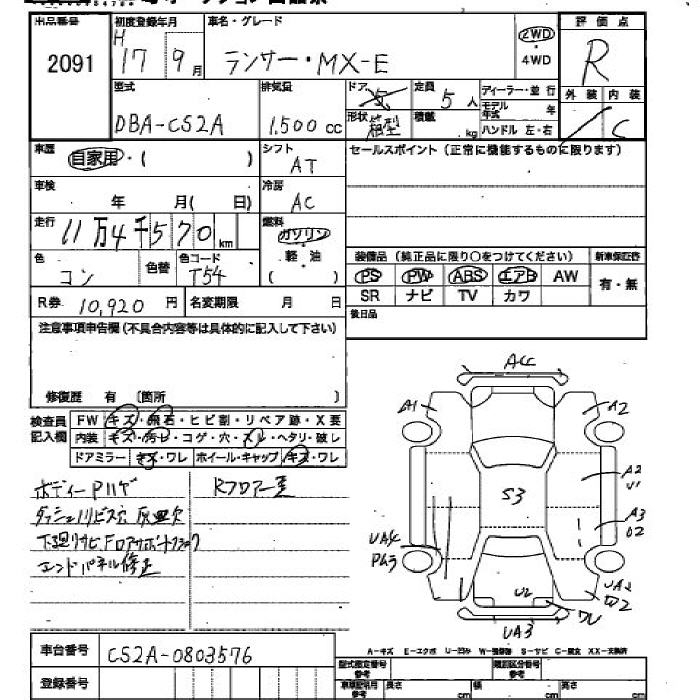 出品番号 初度登録年月 車名・グレード 評価点
2091 H 17 9月 ランサー・MX-E 2WD・4WD R
型式 排気量 ドア 5 定員 5人 ディーラー・並行 外装 内装
DBA-CS2A 1,500cc 形状 箱型 積載 kg モデル年式 年 ハンドル 左・右 C
車歴 自家用・( ) シフト AT セールスポイント (正常に機能するものに限ります)
車検 年 月( 日) 冷房 AC
走行 11万4千570km 燃料 ガソリン
軽・油
( )
色 コン 色替 色コード T54
装備品 (純正品に限り○をつけてください) 新車保証書
PS PW ABS エアB AW 有・無
SR ナビ TV カワ
R券 10,920円 名変期限 月 日
後日品
注意事項申告欄(不具合内容等は具体的に記入して下さい)
修復歴 有 〔箇所 〕
検査員記入欄 FW キズ・飛石・ヒビ割・リペア跡・X要
内装 キズ・汚れ・コゲ・穴・スレ・ヘタリ・破レ
ドアミラー キズ・ワレ ホイール・キャップ キズ・ワレ
ボディーPハゲ Rフロアー歪
ダッシュノリビス穴 灰皿欠
下廻りサビ、
エンドパネル修正
A4
A1 A2
A2
U1
S3
A3
U2
UA4
PA3
UA2
U2
UA3
A-キズ E-エクボ U-凹み W-補修跡 S-サビ C-腐食 XX-交換済
車台番号 CS2A-0803576
登録番号
型式指定番号 参考 類別区分番号 参考
長さ cm 幅 cm 高さ cm